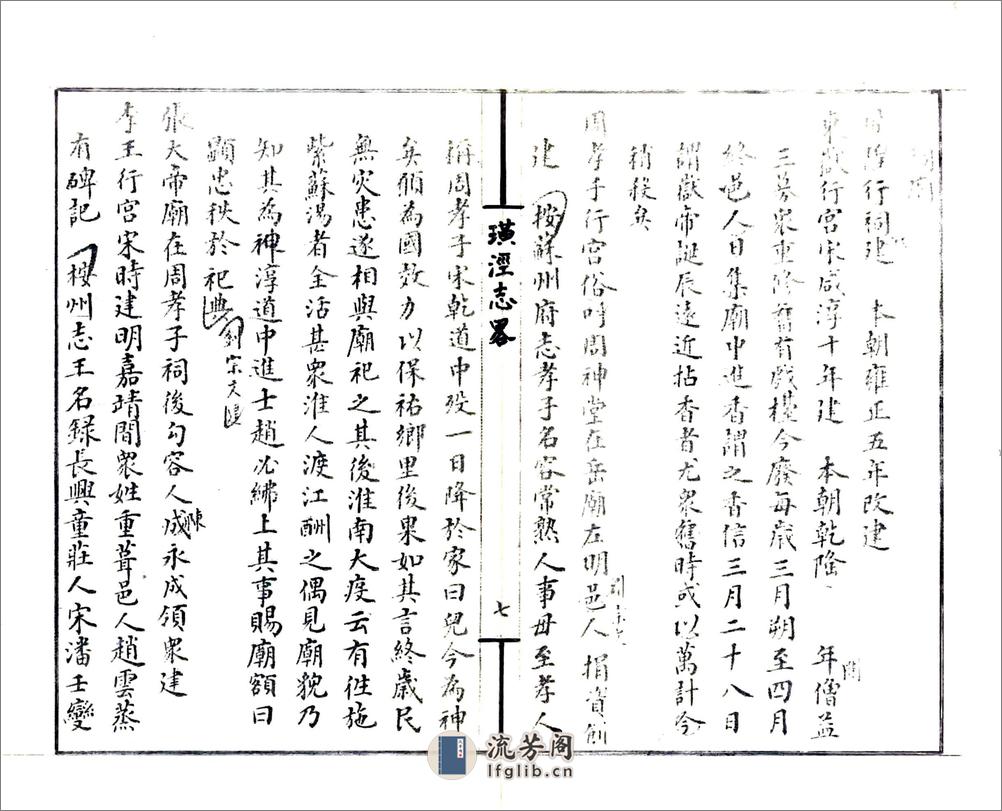 行祠建 本朝雍正五年改建
東嶽行宮宋咸淳十年建 本朝乾隆 年僧益
間
三募衆重修舊有戲樓今廢每歲三月朔至四月
終邑人日集廟中進香謂之香信三月二十八日
謂嶽帝誕辰遠近拈香者尤衆舊時或以萬計今
稍稀矣
周孝子行宮俗呼周神堂在岳廟左明邑人 捐資創
建 按蘇州府志孝子名容常熟人事母至孝人
璜涇志畧
七
稱周孝子宋乾道中歿一日降於家曰兒今為神
矣願為國效力以保祐鄉里後果如其言終歲民
無灾患遂相與廟祀之其後淮南大疫云有往施
紫蘇湯者全活甚衆淮人渡江酬之偶見廟貌乃
知其為神淳道中進士趙必𢃇上其事賜廟額曰
顯忠秩於祀典
張大帝廟在周孝子祠後句容人成永成領衆建
陳
李王行宮宋時建明嘉靖間衆姓重葺邑人趙雲蒸
有碑記 按州志王名録長興童莊人宋潘壬變
流芳阁
lfglib.cn